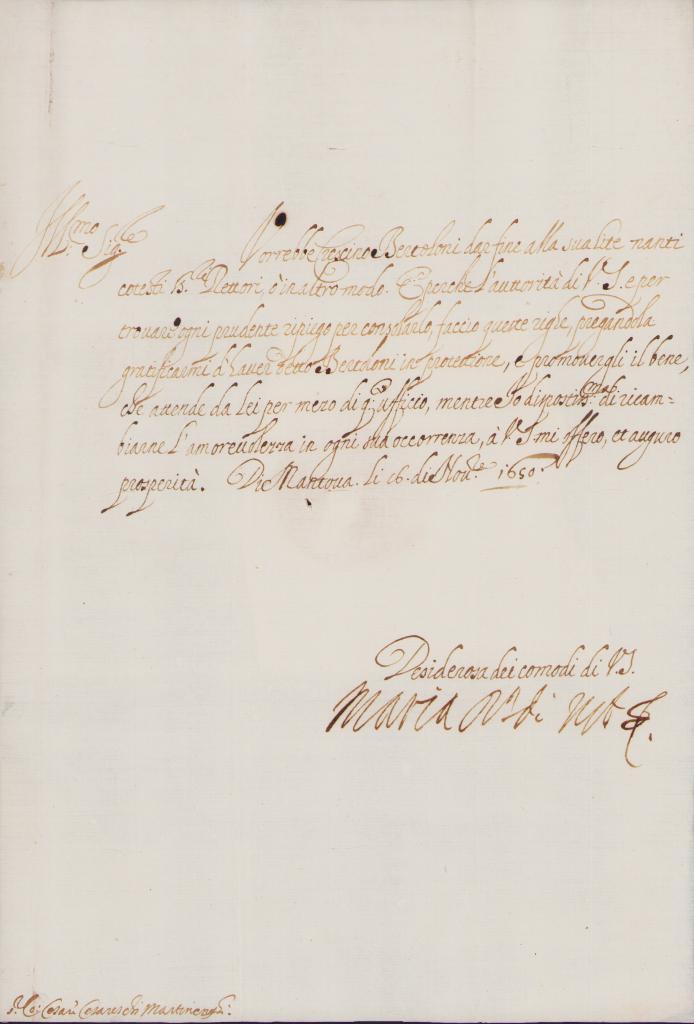 Ill.mo Sig.re Vorrebbe Crescino Bertoloni dar fine alla sua lite nanti
cotesti SS.ri Rettori, ò in altro modo. E perche l'auttorità di V.S. e per
trovare ogni prudente ripiego per consolarlo, faccio queste righe, pregandola
gratificarmi d'haver detto Bertoloni in protettione, e promovergli il bene,
che attende da Lei per mezo di q.to ufficio, mentre Io dispostiss.ma di ricam-
biarne l'amorevolezza in ogni sua occorrenza, à V.S. mi offero, et auguro
prosperità. Di Mantova li 16. di Nov.e 1650.
Desiderosa dei comodi di V.S.
Maria
Co: Cesareschi Martinengo: